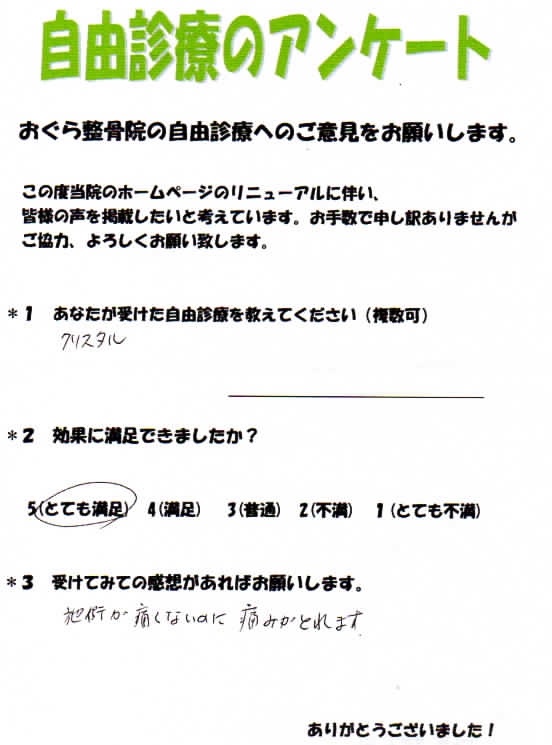 自由診療のアンケート
おぐら整骨院の自由診療へのご意見をお願いします。
この度当院のホームページのリニューアルに伴い、
皆様の声を掲載したいと考えています。お手数で申し訳ありませんが
ご協力、よろしくお願い致します。
＊1 あなたが受けた自由診療を教えてください（複数可）
クリスタル
＊2 効果に満足できましたか？
5(とても満足) 4(満足) 3(普通) 2(不満) 1(とても不満)
＊3 受けてみての感想があればお願いします。
施術が痛くないのに 痛みがとれます
ありがとうございました！